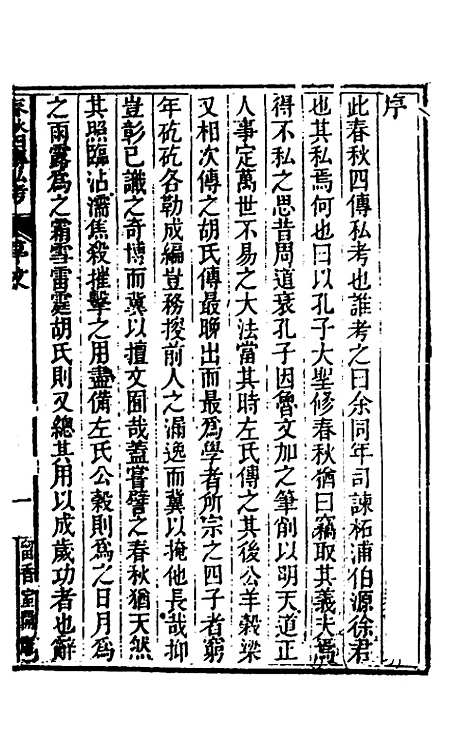 序
此春秋四傳私考也誰考之曰余同年司諫柘浦伯源徐君
也其私焉何也曰以孔子大聖修春秋猶曰竊取其義夫焉
得不私之思昔周道衰孔子因魯文加之筆削以明天道正
人事定萬世不易之大法當其時左氏傳之其後公羊榖梁
又相次傳之胡氏傳最晚出而最為學者所宗之四子者窮
年矻矻各勒成編豈務搜前人之漏逸而冀以掩他長哉抑
豈彰已識之奇博而冀以擅文囿哉蓋嘗譬之春秋猶天然
其照臨沾濡焦殺摧擊之用盡備左氏公榖則為之日月為
之雨露為之霜雪雷霆胡氏則又總其用以成歲功者也辭
春秋四傳私考
序文
一
留香室開雕